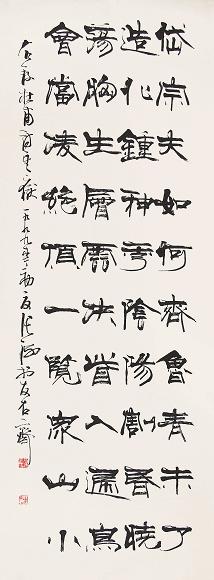 岱宗夫如何齊魯青未了
造化鍾神秀陰陽割昏曉
蕩胸生層雲決眥入歸鳥
會當凌絕頂一覽眾山小
杜甫望嶽一九九年初夏